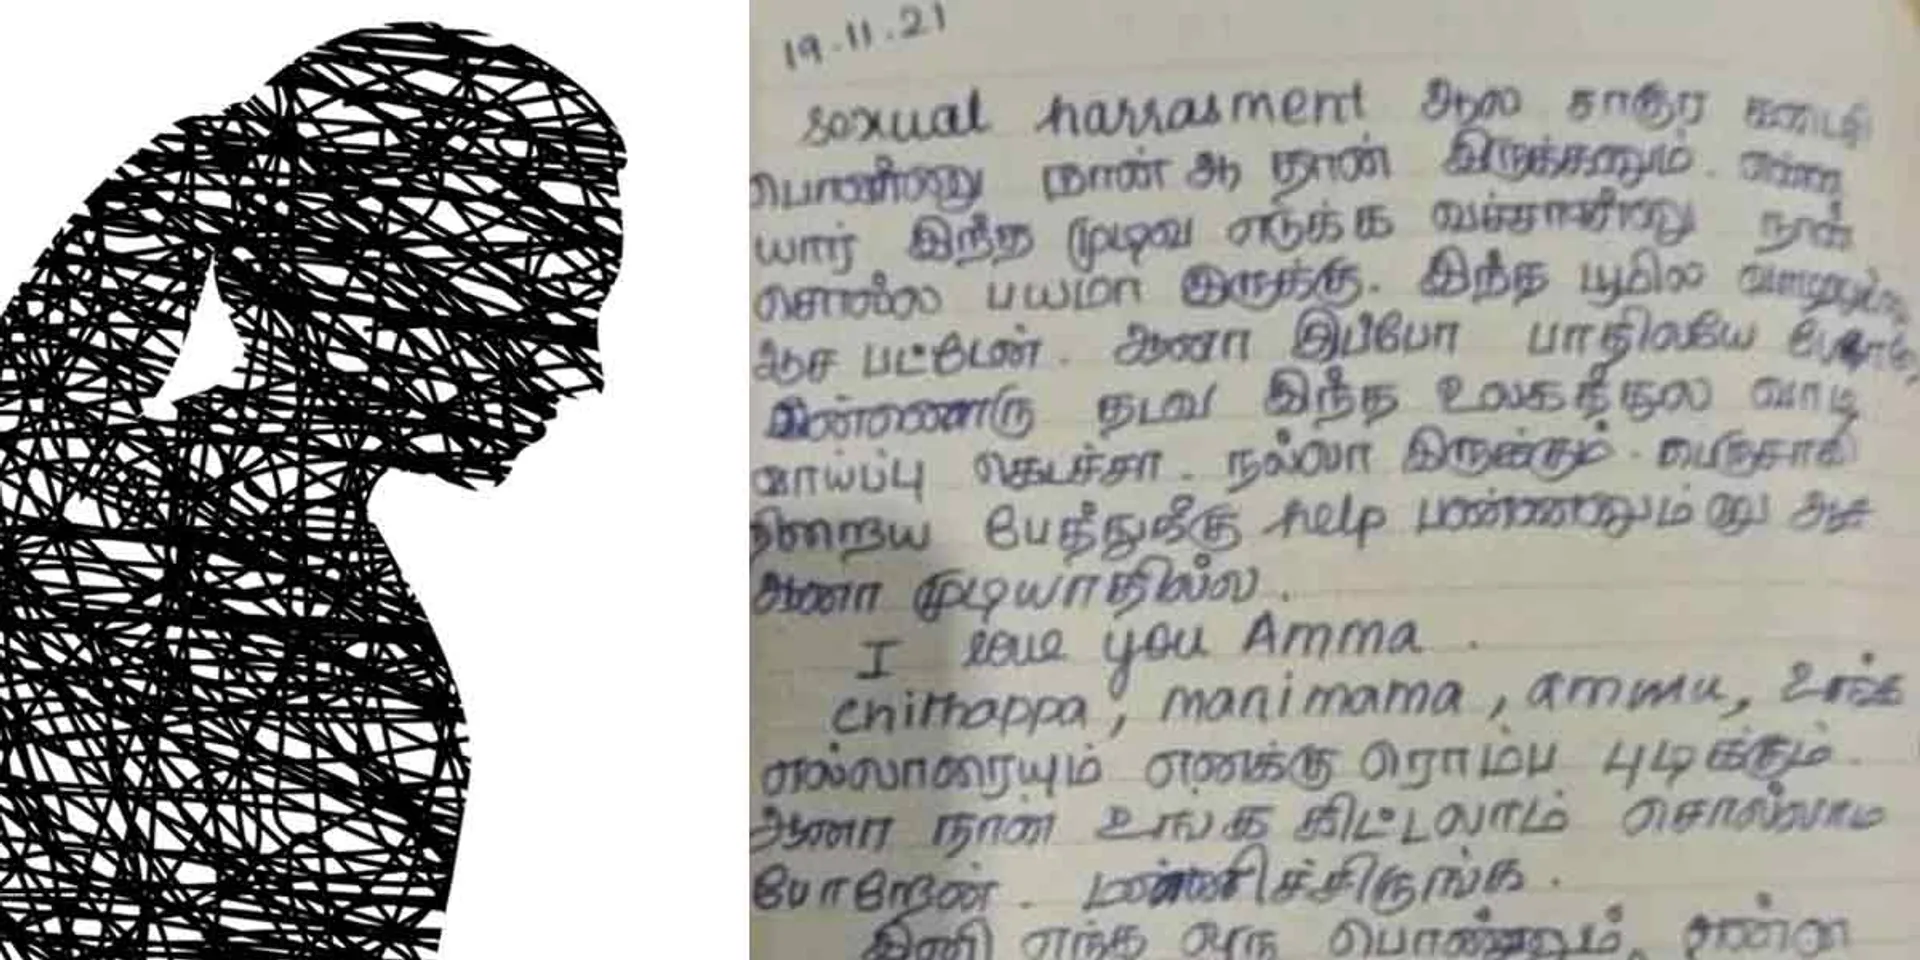 19.11.21
sexual harrasment ஆல சாகுற கடைசி
பொண்ணு நான் ஆ தான் இருக்கணும். என்ன
யார் இந்த முடிவ எடுக்க வச்சான்னு நான்
சொல்ல பயமா இருக்கு. இந்த பூமில
ஆச பட்டேன். ஆனா இப்போ பாதிலயே
இன்னொரு தடவ இந்த உலகத்துல வாழ
வாய்ப்பு கெடச்சா. நல்லா இருக்கும். பெருசாகி
நிறைய பேத்துக்கு help பண்ணணும்னு ஆச
ஆனா முடியாதில்ல.
I love you Amma.
chithappa, manimama, ammu, உங்க
எல்லாரையும் எனக்கு ரொம்ப புடிக்கும்.
ஆனா நான் உங்க கிட்டலாம் சொல்லாம
போறேன். மன்னிச்சிருங்க.
இனி எந்த ஒரு பொண்ணும்